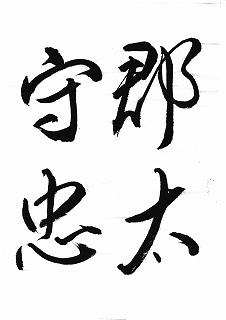 郡太
守忠